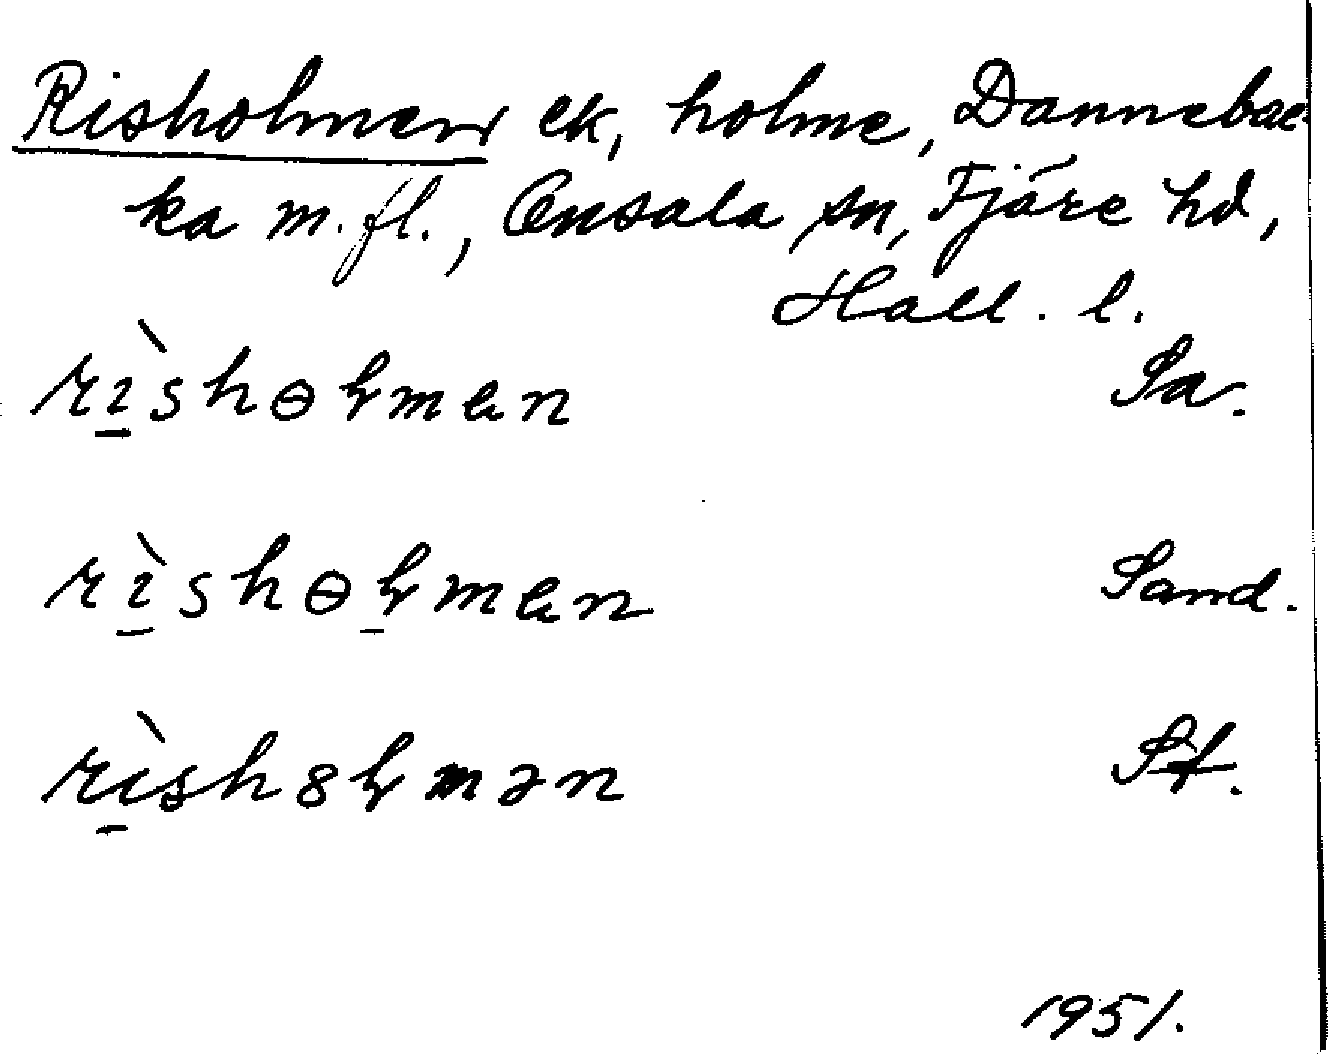 Risholmen ek, holme, Dannebac-
ka m. fl., Onsala sn, Fjäre hd,
Hall. l.
rìshɵɫmen Sa.
rìshɵɫmen Sand.
rìsh8ɫmən St.
1951.